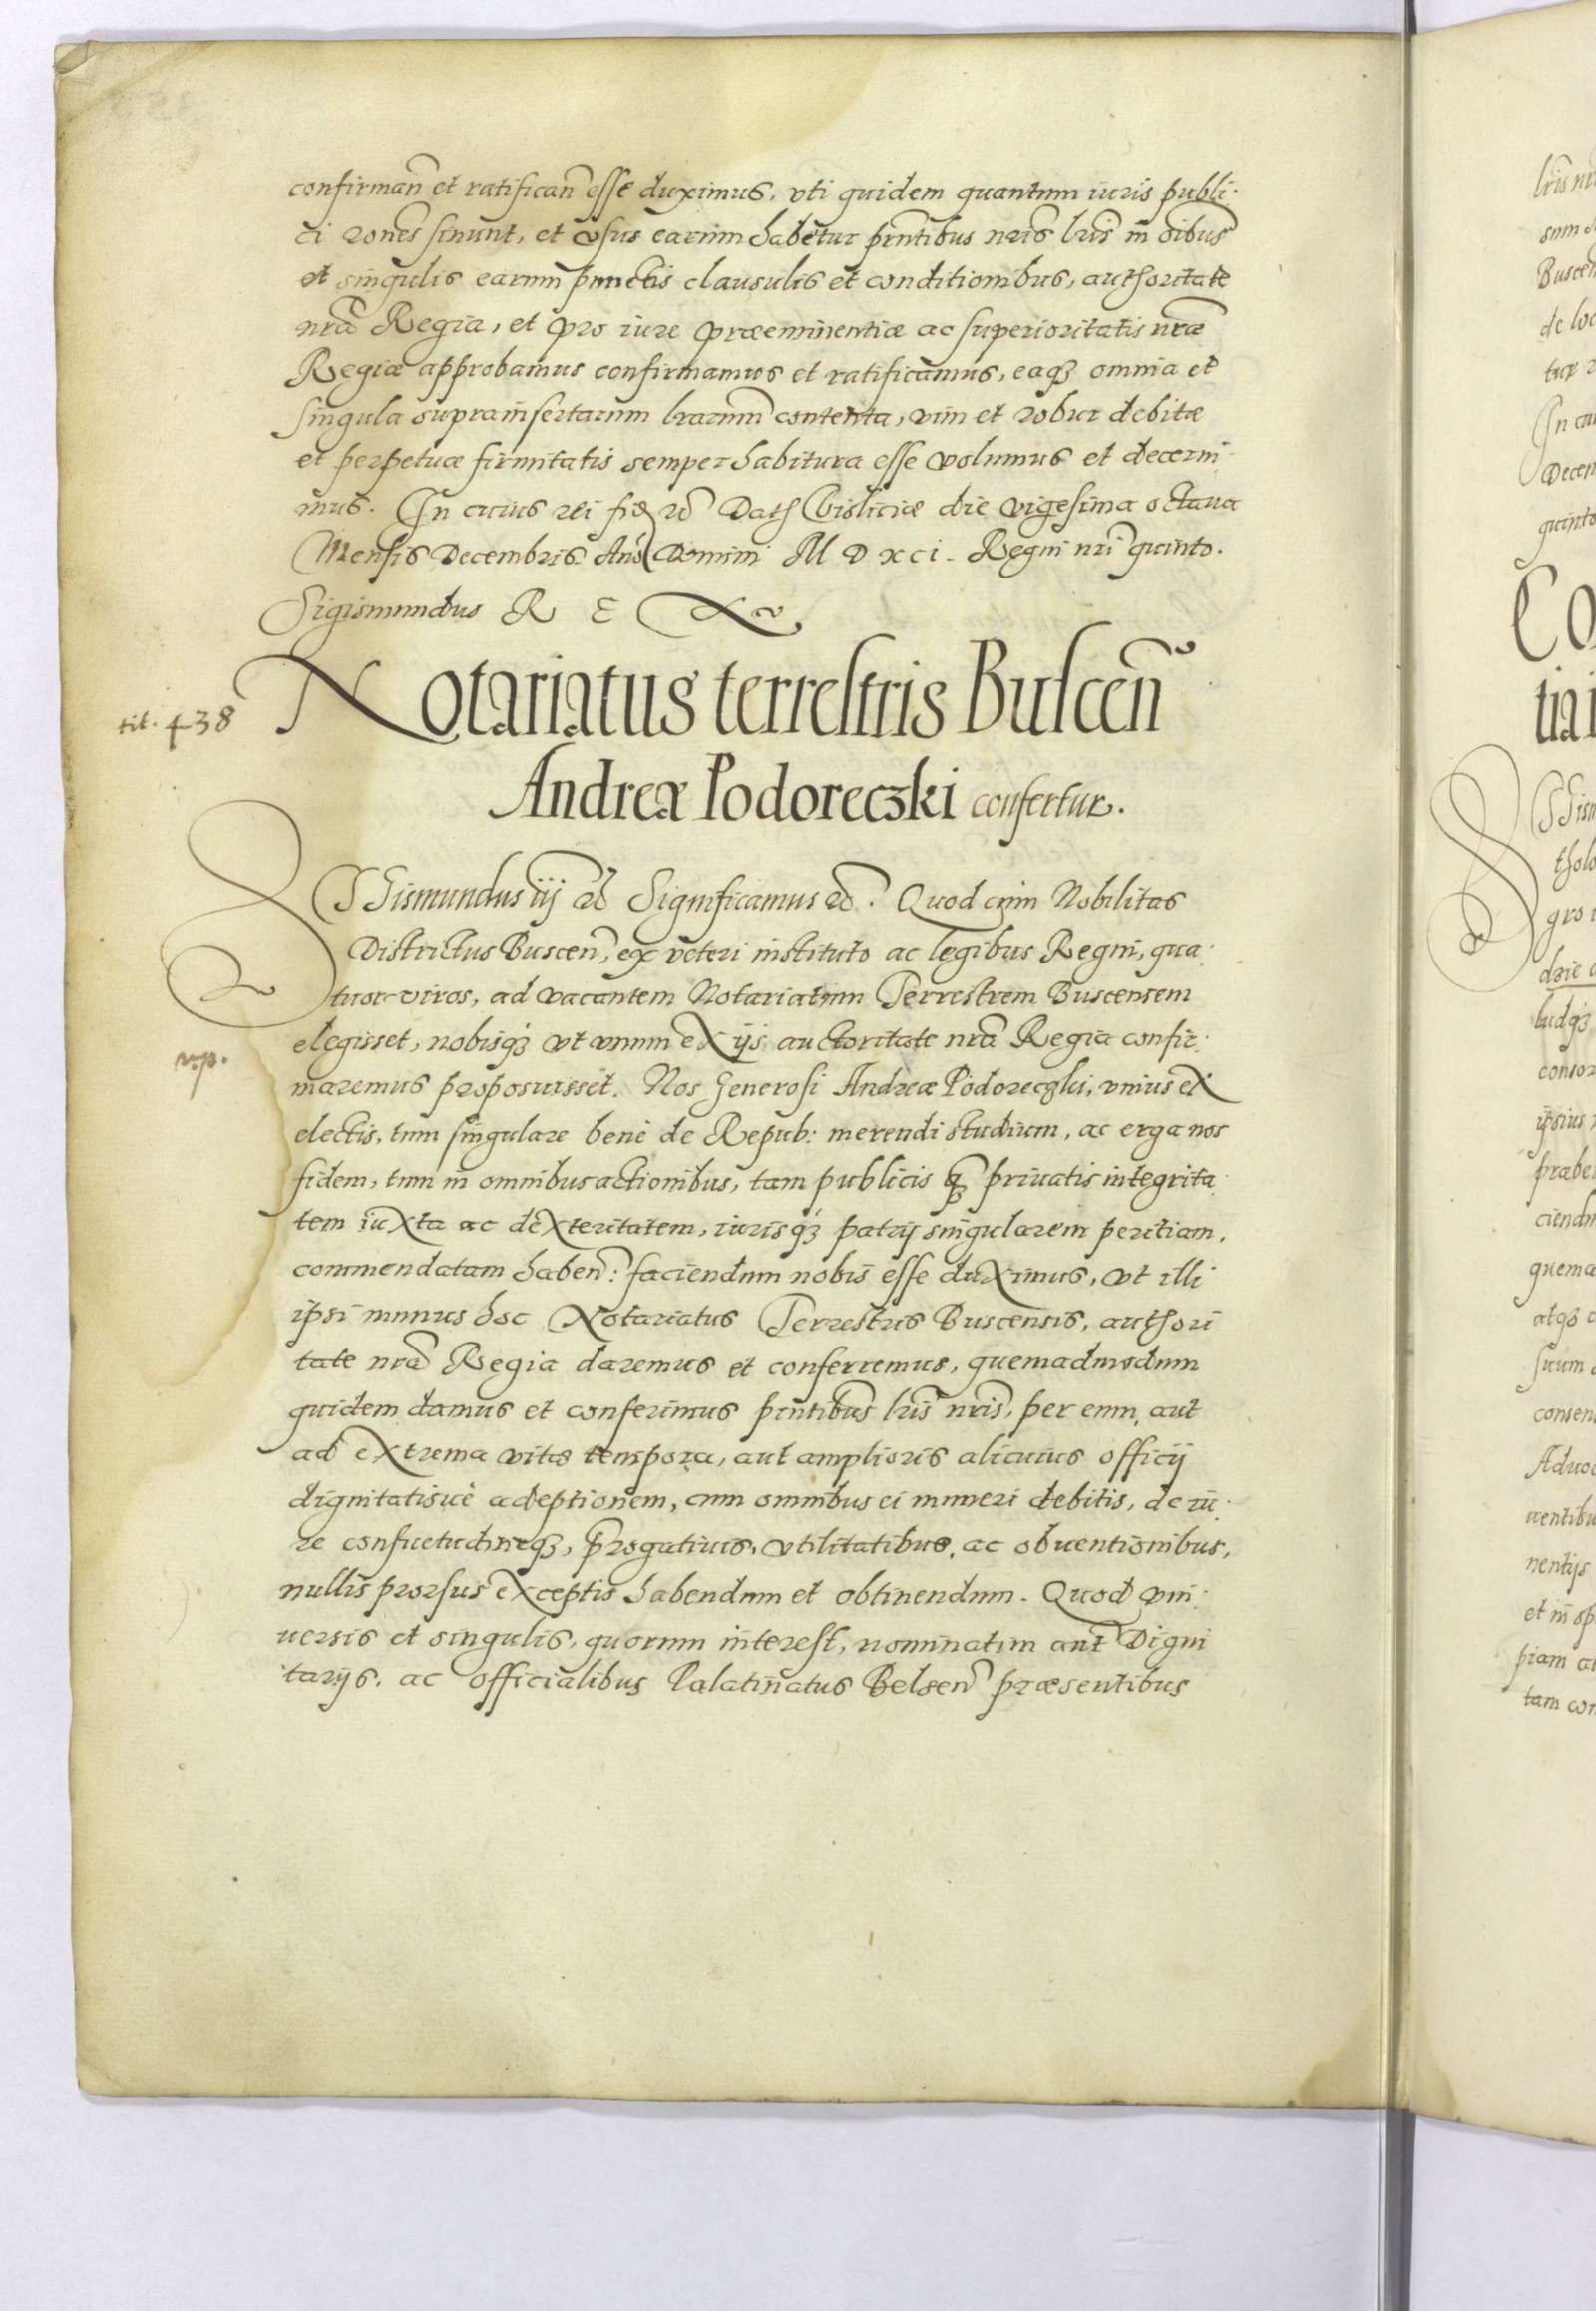 confirmañ et ratificañ esse duximus, vti quidem quantum iuris publi-
ci rones sinunt, et vsus earum habetur pñtibus nris lris in oibus
et singulis earum punctis clausulis et conditionibus, authoritate
nra Regia, et pro iure præeminentiæ ac superioritatis nræ
Regiæ approbamus confirmamus et ratificamus, eaq3 omnia et
singula suprainsertarum lrarum contenta, vim et robur debitæ
et perpetuæ firmitatis semper habitura esse volumus et decerni-
mus. In cuius rei fid Dat Visliciæ die vigesima octaua
Mensis Decembris Año Domini M D xci. Regni nri quinto.
Sigismundus R
Notariatus terrestris Buscen̄
tit. 438
Andreæ Podoreczki confertur.
SIGismundus iij Significamus Quod cum Nobilitas
Districtus Buscen̄, ex veteri instituto ac legibus Regni, qua-
tuor viros, ad vacantem Notariatum Terrestrem Buscensem
elegisset, nobisq3 vt vnum ex ijs auctoritate nra Regia confir-
maremus proposuisset. Nos Generosi Andreæ Podoreczki, vnius ex
electis, tum singulare bene de Repub: merendi studium, ac erga nos
fidem, tum in omnibus actionibus, tam publicis q̃ priuatis integrita-
tem iuxta ac dexteritatem, iurisq3 patrij singularem peritiam,
commendatam haben̄: faciendum nobis esse duximus, vt illi
ipsi munus hoc Notariatus Terrestris Buscensis, authori
tate nra Regia daremus et conferremus, quemadmodum
quidem damus et conferimus pñtibus lris nris, per eum, aut
ad extrema vitæ tempora, aut amplioris alicuius officij
dignitatisue adeptionem, cum omnibus ei muneri debitis, de iu-
re consuetudineq3, progatiuis, vtilitatibus, ac obuentionibus,
nullis prorsus exceptis habendum et obtinendum. Quod vni-
uersis et singulis, quorum interest, nominatim aut Digni
tarijs, ac officialibus Palatinatus Belsen̄ præsentibus